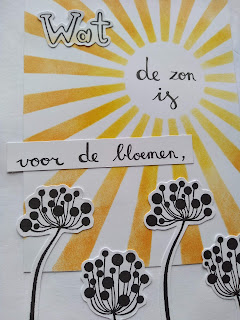 Wat
de zon
is
voor de bloemen,